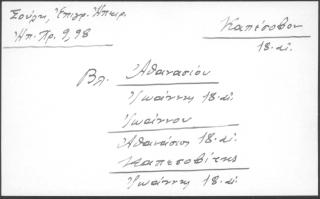 Σούλη, Ἐπιγρ. Ἠπειρ.
Ἠπ. Χρ. 9, 98
Καπέσοβον
18. αἰ.
Βλ. Ἀθανασίου
Ἰωάννης 18. αἰ.
Ἰωάννου
Ἀθανάσιος 18. αἰ.
Καπεσοβίτης
Ἰωάννης 18. αἰ.